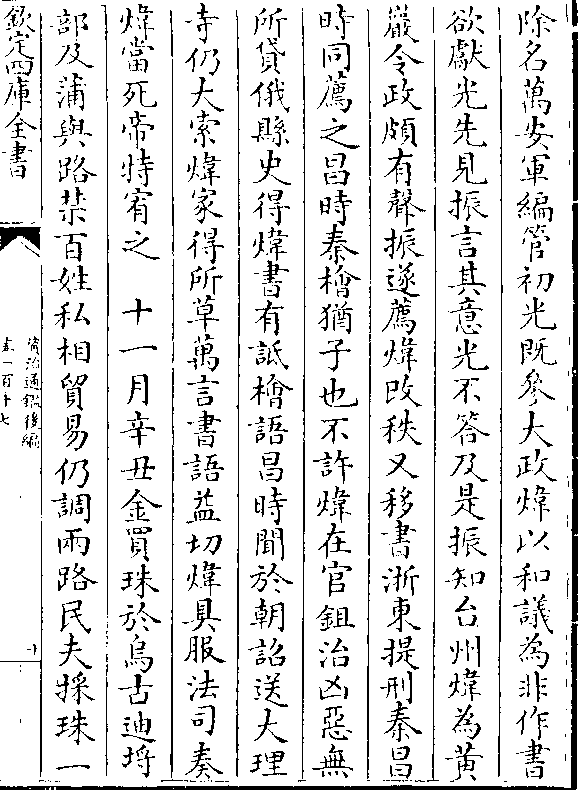 除名萬安軍編管初光既參大政煒以和議為非作書
欲獻光先見振言其意光不答及是振知台州煒為黄
巖令政頗有聲振遂薦煒改秩又移書浙東提刑秦昌
時同薦之昌時秦檜猶子也不許煒在官鉏治凶惡無
所貸俄縣吏得煒書有詆檜語昌時聞於朝詔送大理
寺仍大索煒家得所草萬言書語益切煒具服法司奏
煒當死帝特宥之　十一月辛丑金買珠於烏古迪埒
部及蒲與路禁百姓私相貿易仍調兩路民夫採珠一
欽定四庫全書
資治通鑑後編
卷一百十七